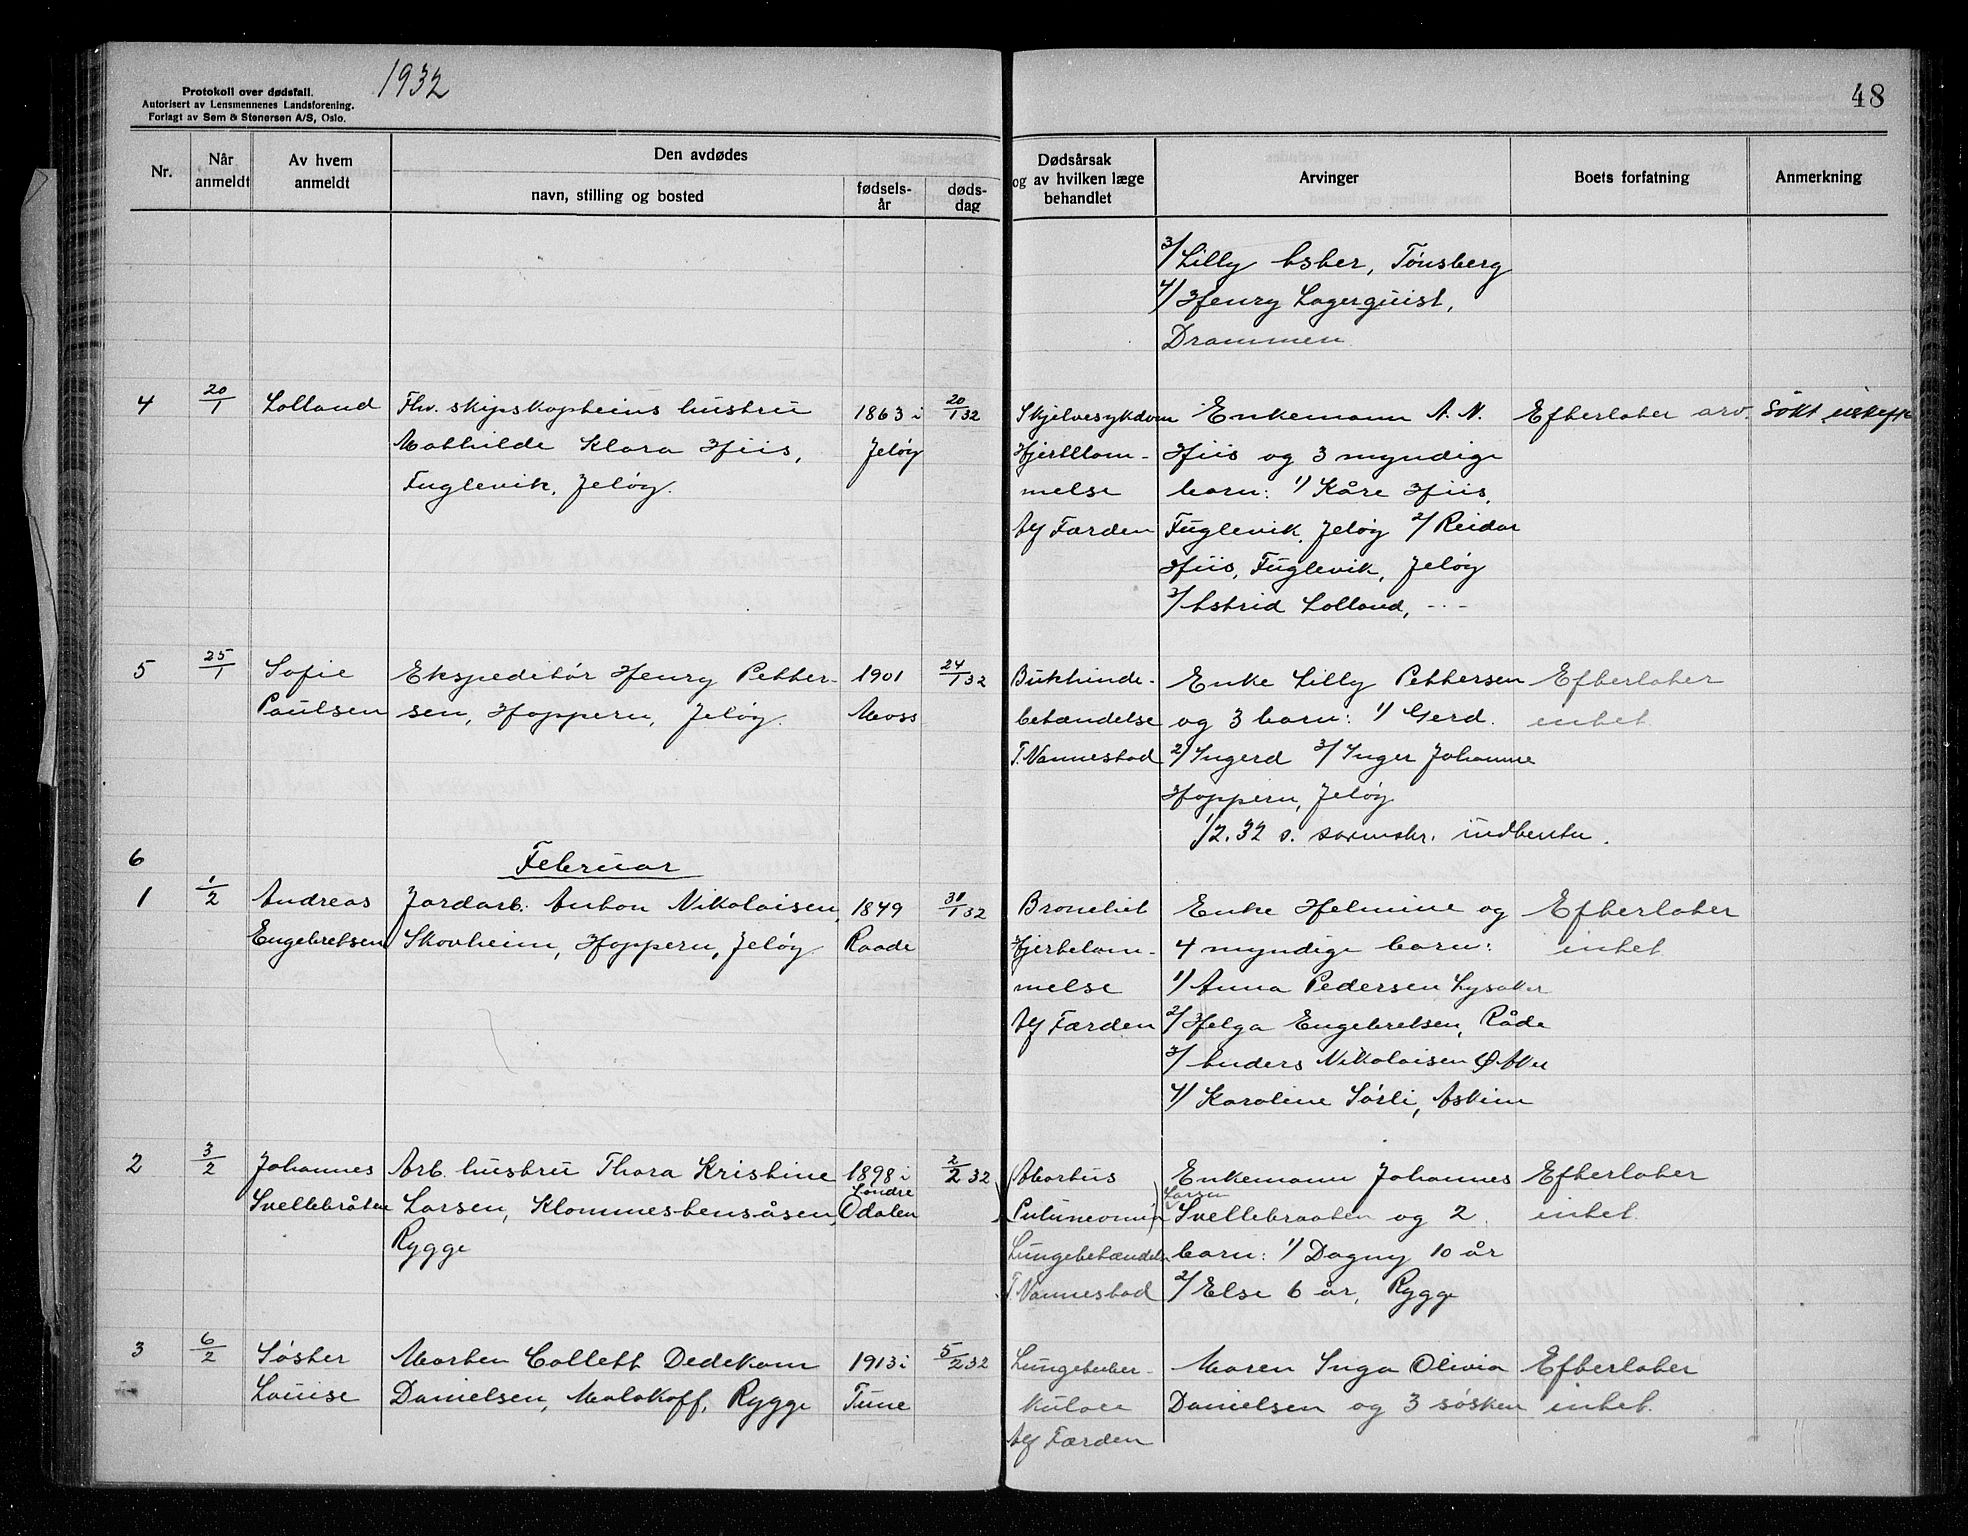 1932
48
Protokoll over dødsfall.
Autorisert av Lensmennenes Landsforening.
Forlagt av Sem & Stenersen A/S, Oslo.
Nr.
Når anmeldt
Av hvem anmeldt
Den avdødes
navn, stilling og bosted
fødsels-år
døds-dag
Dødsårsak og av hvilken læge behandlet
Arvinger
Boets forfatning
Anmerkning
3/ Lilly Asber, Tønsberg
4/ Henry Lagerquist,
Drammen
4 20/1 Lolland Fhv. skipskapteins hustru 1863 i 20/1 32 Skjelvesykdom Enkemann A. N. Efterlater arv. Søkt
Mathilde Klara Hiis, Jeløy Hjertelam- Hiis og 3 myndige
Fuglevik, Jeløy. melse barn: 1/ Kåre Hiis,
Alf Færden Fuglevik, Jeløy 2/ Reidar
Hiis, Fuglevik, Jeløy
3/ Astrid Lolland, -·-
5 25/1 Sofie Ekspeditør Henry Petter- 1901 24/1 32 Bukhinde- Enke Lilly Pettersen Efterlater
Paulsen sen, Hoppern, Jeløy. Moss betændelse og 3 barn: 1/ Gerd. intet
T. Vannestad 2/ Ingerd 3/ Inger Johanne
Hoppern, Jeløy
1/2.32 s. sorenskr. indberetn.
6
Februar
1 1/2 Andreas Jordarb. Anton Nikolaisen, 1849 31/1 32 Bronchit Enke Helmine og Efterlater
Engebretsen Skovheim, Hoppern, Jeløy. Raade Hjertelam- 4 myndige barn: intet
melse 1/ Anna Pedersen Lysaker
Alf Færden 2/ Helga Engebretsen, Råde
3/ Anders Nikolaisen Ø Aker
4/ Karoline Sørli, Askim
2 3/2 Johannes Arb. hustru Thora Kristine 1898 i 2/2 32 (Abortus Enkemann Johannes Efterlater
Svellebråten Larsen, Klommestensåsen, Søndre Odalen Larsen Svellebraaten og 2 intet.
Rygge Lungebetændelse barn: 1/ Dagny 10 år
T. Vannestad 2/ Else 6 år, Rygge
3 6/2 Søster Morten Collett Dedekam 1913 i 5/2 32 Lungetuber- Maren Inga Olivia Efterlater
Louise Danielsen, Malakoff, Rygge Tune kulose Danielsen og 3 søsken intet.
Alf Færden